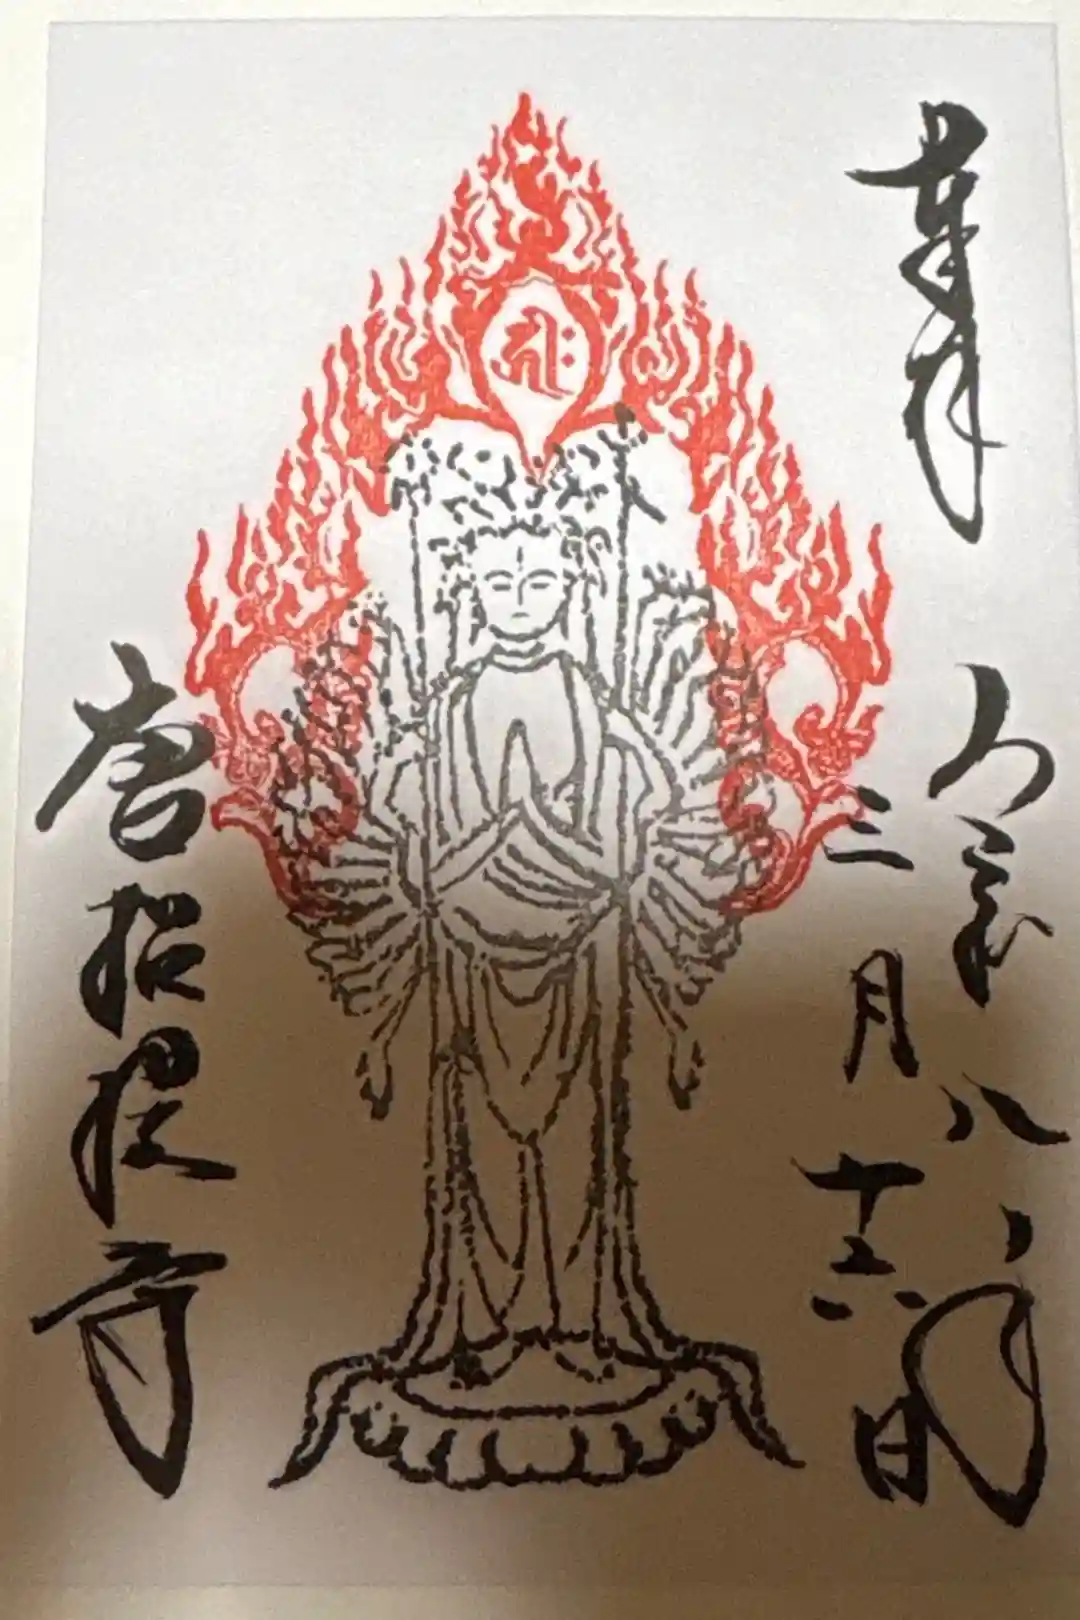 奉拝
令和八年
三月十六日
𑖮𑖿𑖨𑖱𑖾
唐招提寺